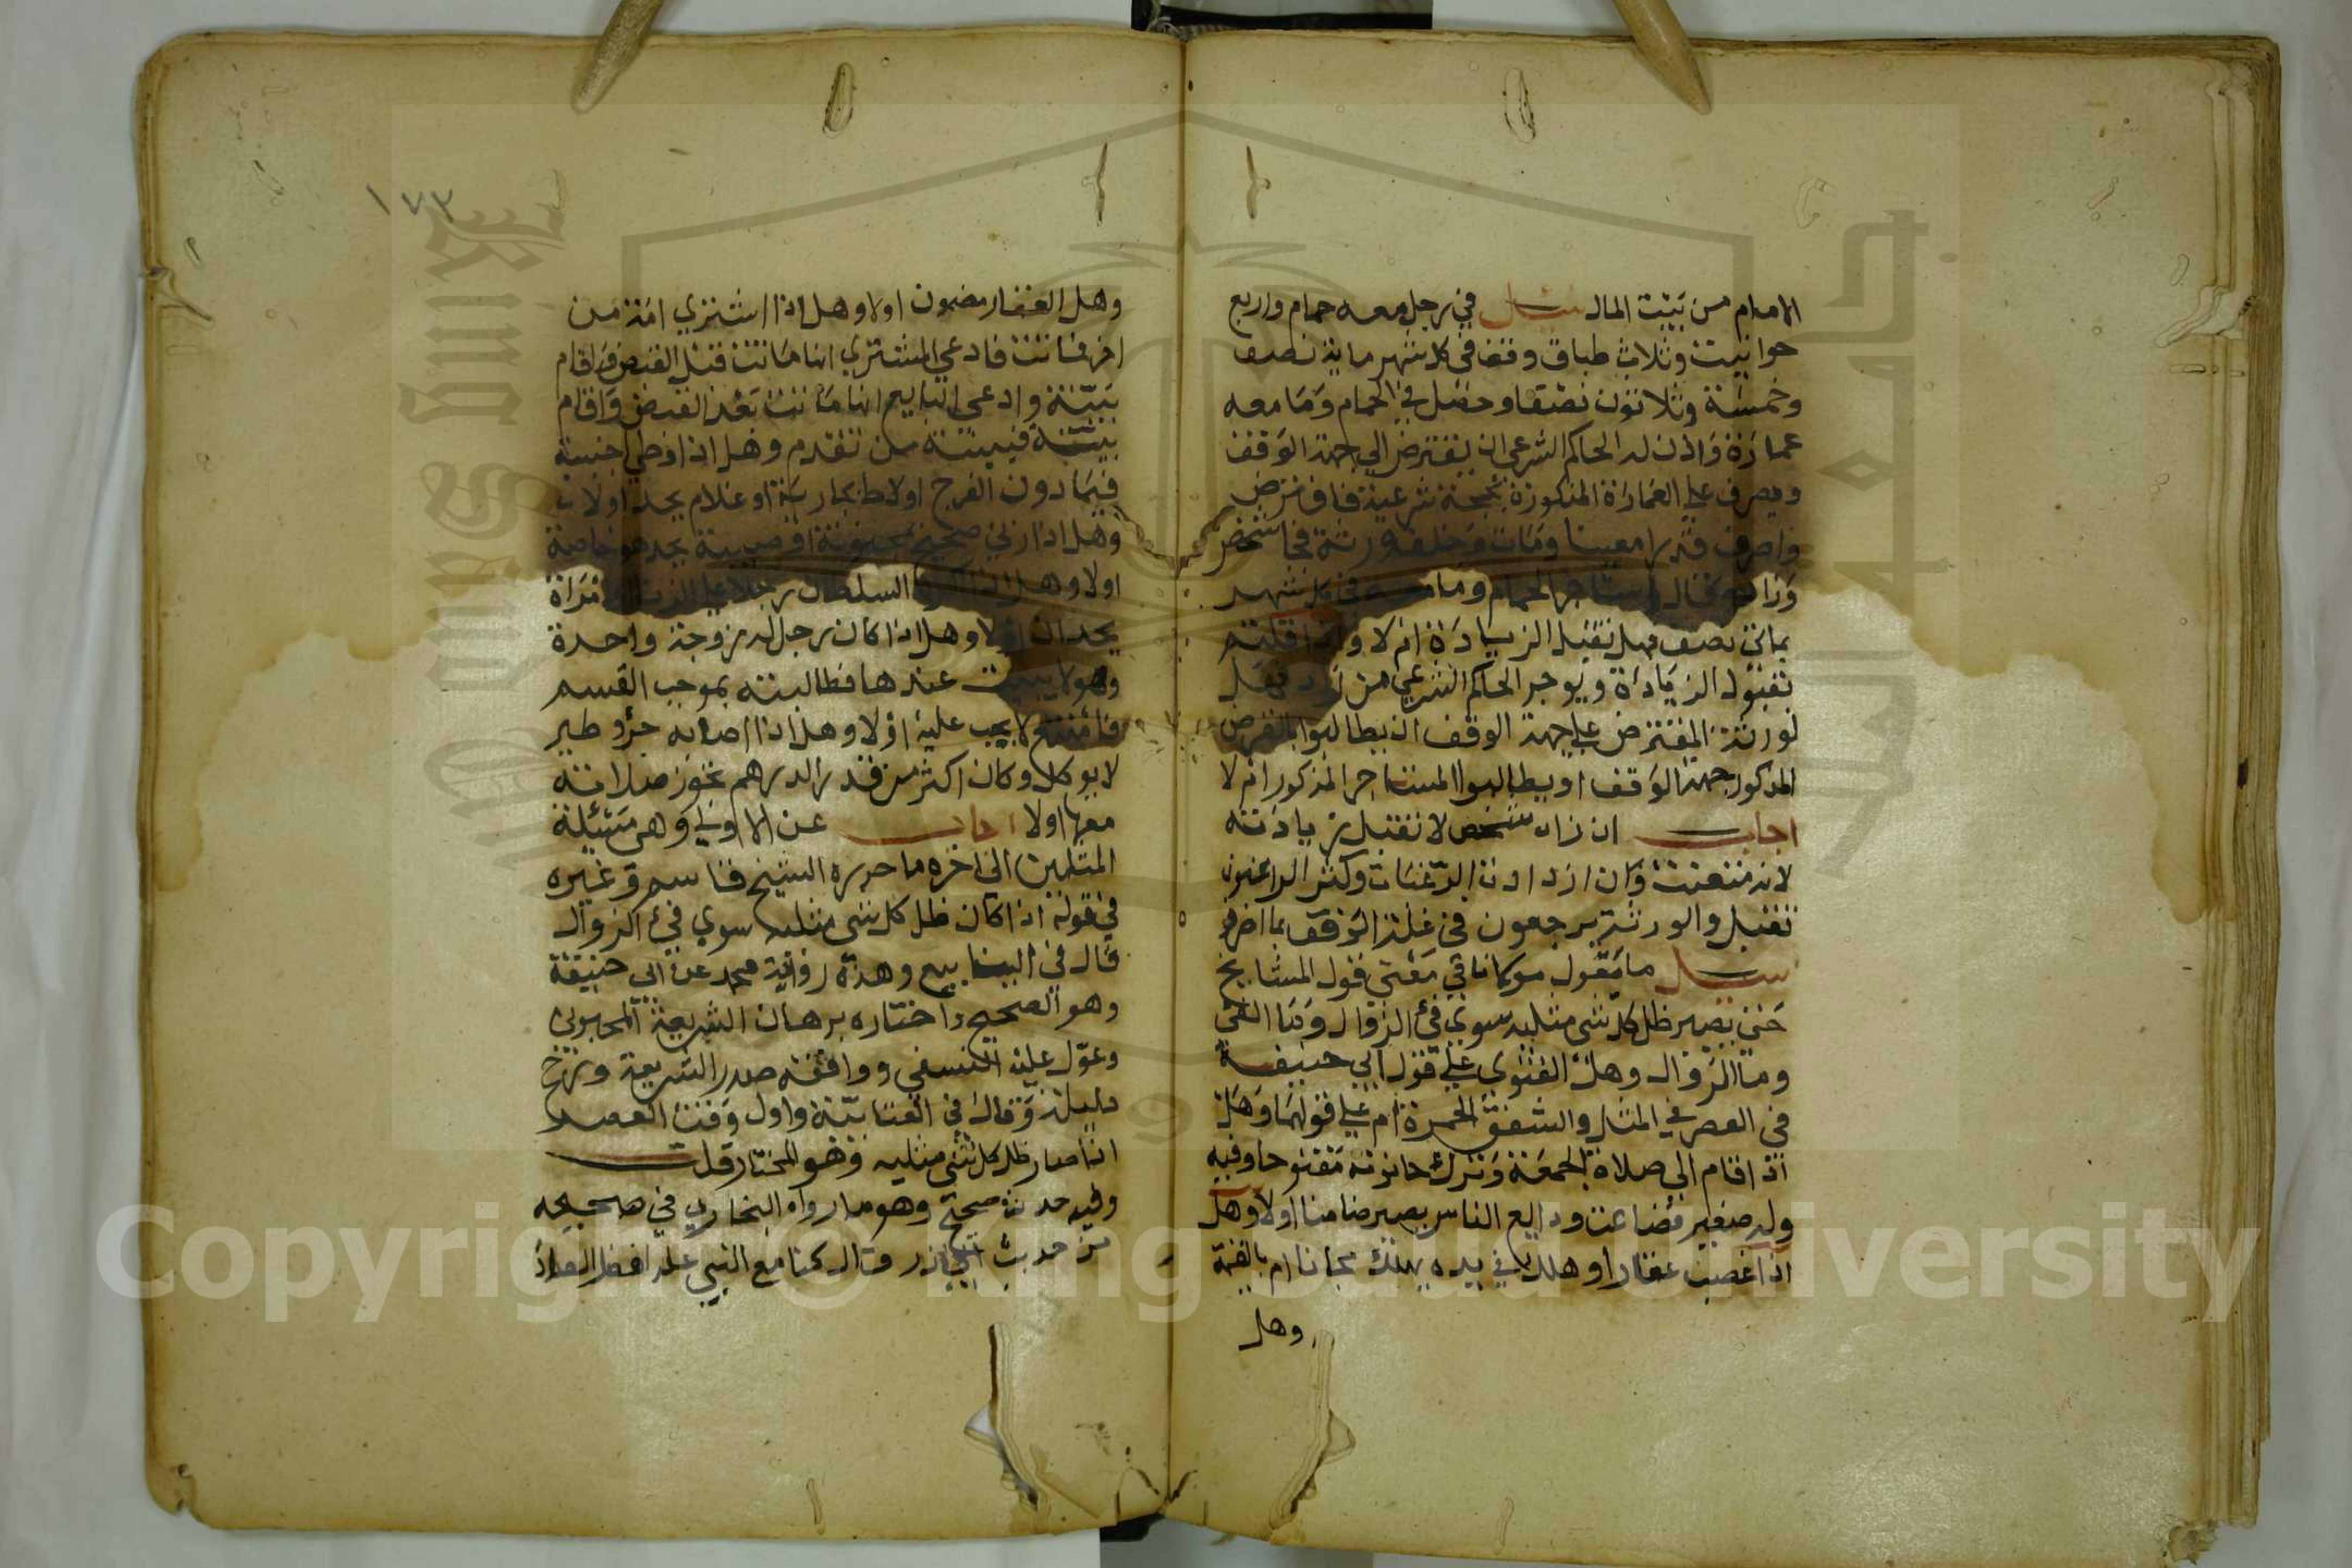 الامام من بيت المال سئل في رجل معه حمام واربع
حوانيت وثلاث طباق وقف في كل شهر ماية نصف
وخمسة وثلاثون نصفا وحصل في الحمام وما معه
عمارة واذن له الحاكم الشرعي ان يقترض الي جهة الوقف
ويصرف علي العمارة المذكورة بحجة شرعية فاقترض
واصرف قدرا معينا ومات وخلف ورثة فجا شخص
وزاد وقال استاجر الحمام وما معه في كل شهر
بمائتي نصف فهل تقبل الزيادة ام لا واذا قلتم
بقبول الزيادة ويوجر الحاكم الشرعي من زاد فهل
لورثة المقترض علي جهة الوقف ان يطالبوا بالقرض
المذكور جهة الوقف او يطالبوا المستاجر المذكور ام لا
اجاب ان زاد شخص لا تقبل زيادته
لانه متعنت وان ازدادت الرغبات وكثر الراغبون
تقبل والورثة يرجعون في غلة الوقف بما اصرف
سئل ما يقول مولانا في معني قول المشايخ
حتي يصير ظل كل شي مثليه سوي فئ الزوال وما الفئ
وما الزوال وهل الفتوي علي قول ابي حنيفة
في العصر في المثل والشفق الحمرة ام علي قولهما وهل
اذا قام الي صلاة الجمعة وترك حانوته مفتوحا وفيه
ولد صغير فضاعت ودايع الناس يصير ضامنا اولا وهل
اذا غصب عقارا وهلك في يده يهلك مجانا ام بالقيمة
وهل
١٧٣
وهل العقار مضمون اولا وهل اذا اشتري امة من
اخر فماتت فادعي المشتري انها ماتت قبل القبض واقام
بينة وادعي البايع انها ماتت بعد القبض واقام
بينة فبينة من تقدم وهل اذا وطي اجنبية
فيما دون الفرج اولاط بجارية او غلام يحد اولا
وهل اذا زني صحيح بمجنونة او صبية يحد هو خاصة
اولا وهل اذا اكره السلطان رجلا علي الزنا بامراة
يحدان اولا وهل اذا كان رجل له زوجة واحدة
وهو لا يبيت عندها فطالبته بموجب القسم
فامتنع لا يجب عليه اولا وهل اذا اصابه خرؤ طير
لا يوكل وكان اكثر من قدر الدرهم تجوز صلاته
معها اولا اجاب عن الاولي وهي مسئلة
المثلين الي اخره ما حرره الشيخ قاسم وغيره
في قوله اذا كان ظل كل شي مثليه سوي فئ الزوال
قال في الينابيع وهذه رواية محمد عن ابي حنيفة
وهو الصحيح واختاره برهان الشريعة المحبوبي
وعول عليه النسفي ووافقه صدر الشريعة ورجح
دليله وقال في الغياثية واول وقت العصر
اذا صار ظل كل شي مثليه وهو المختار قلت
وفيه حديث صحيح وهو ما رواه البخاري في صحيحه
من حديث ابي ذر قال كنا مع النبي عليه افضل الصلاة
Copyright © King Saud University